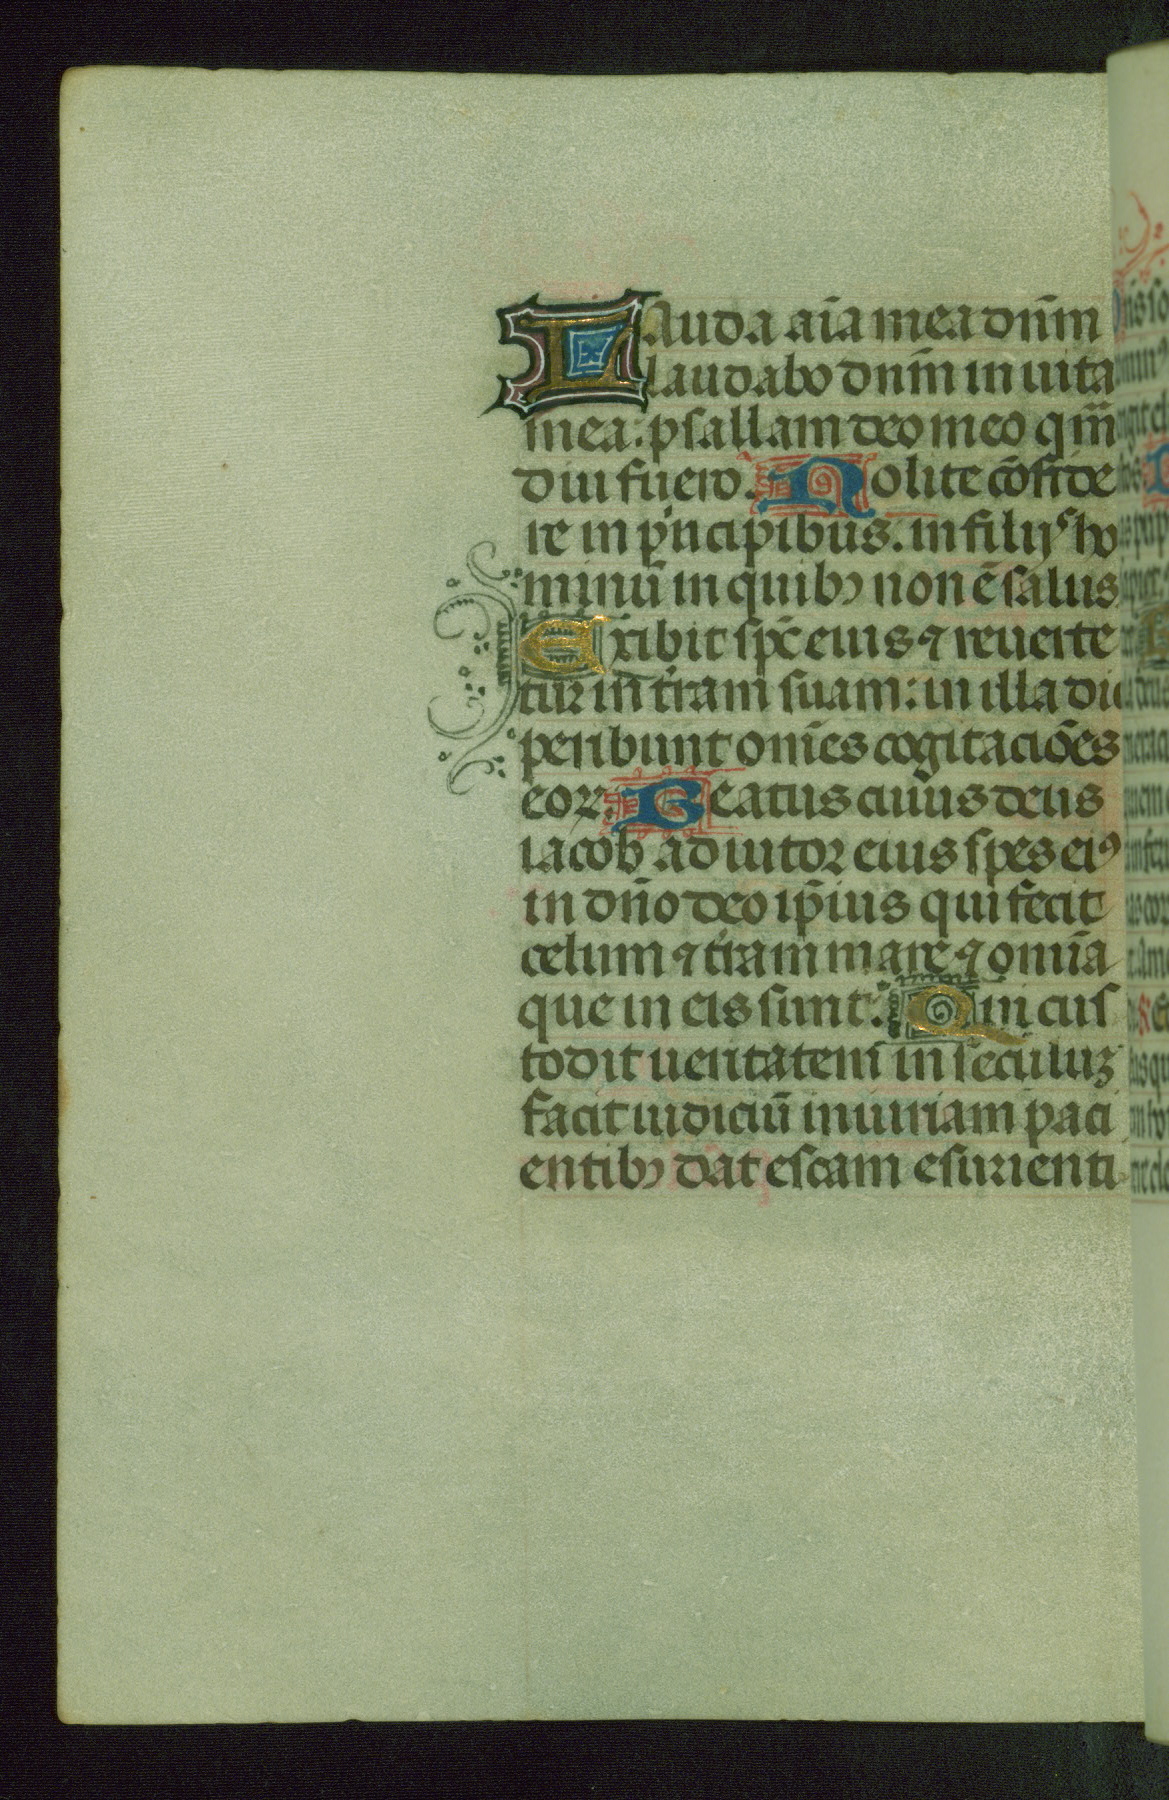 Lauda aīa mea dnm̄
laudabo dnm̄ in uita
mea: psallam deo meo qm̄
diu fuero. Nolite cōfide
re in pͥncipibus. in filijs ho
minū in quibꝫ non ē salus
Exibit sp̄c eius ⁊ reuerte
tur in tr̄am suam: in illa die
peribunt om̄es cogitaciōes
eoꝝ. Beatus cuius deus
iacob adiutor eius spes eiꝰ
in dn̄o deo ip̄ius qui fecit
celum ⁊ tr̄am mare ⁊ omīa
que in eis sunt. Qui cus
todit ueritatem in seculuꝫ
facit iudiciū iniuriam paci
entibꝫ dat escam esurienti